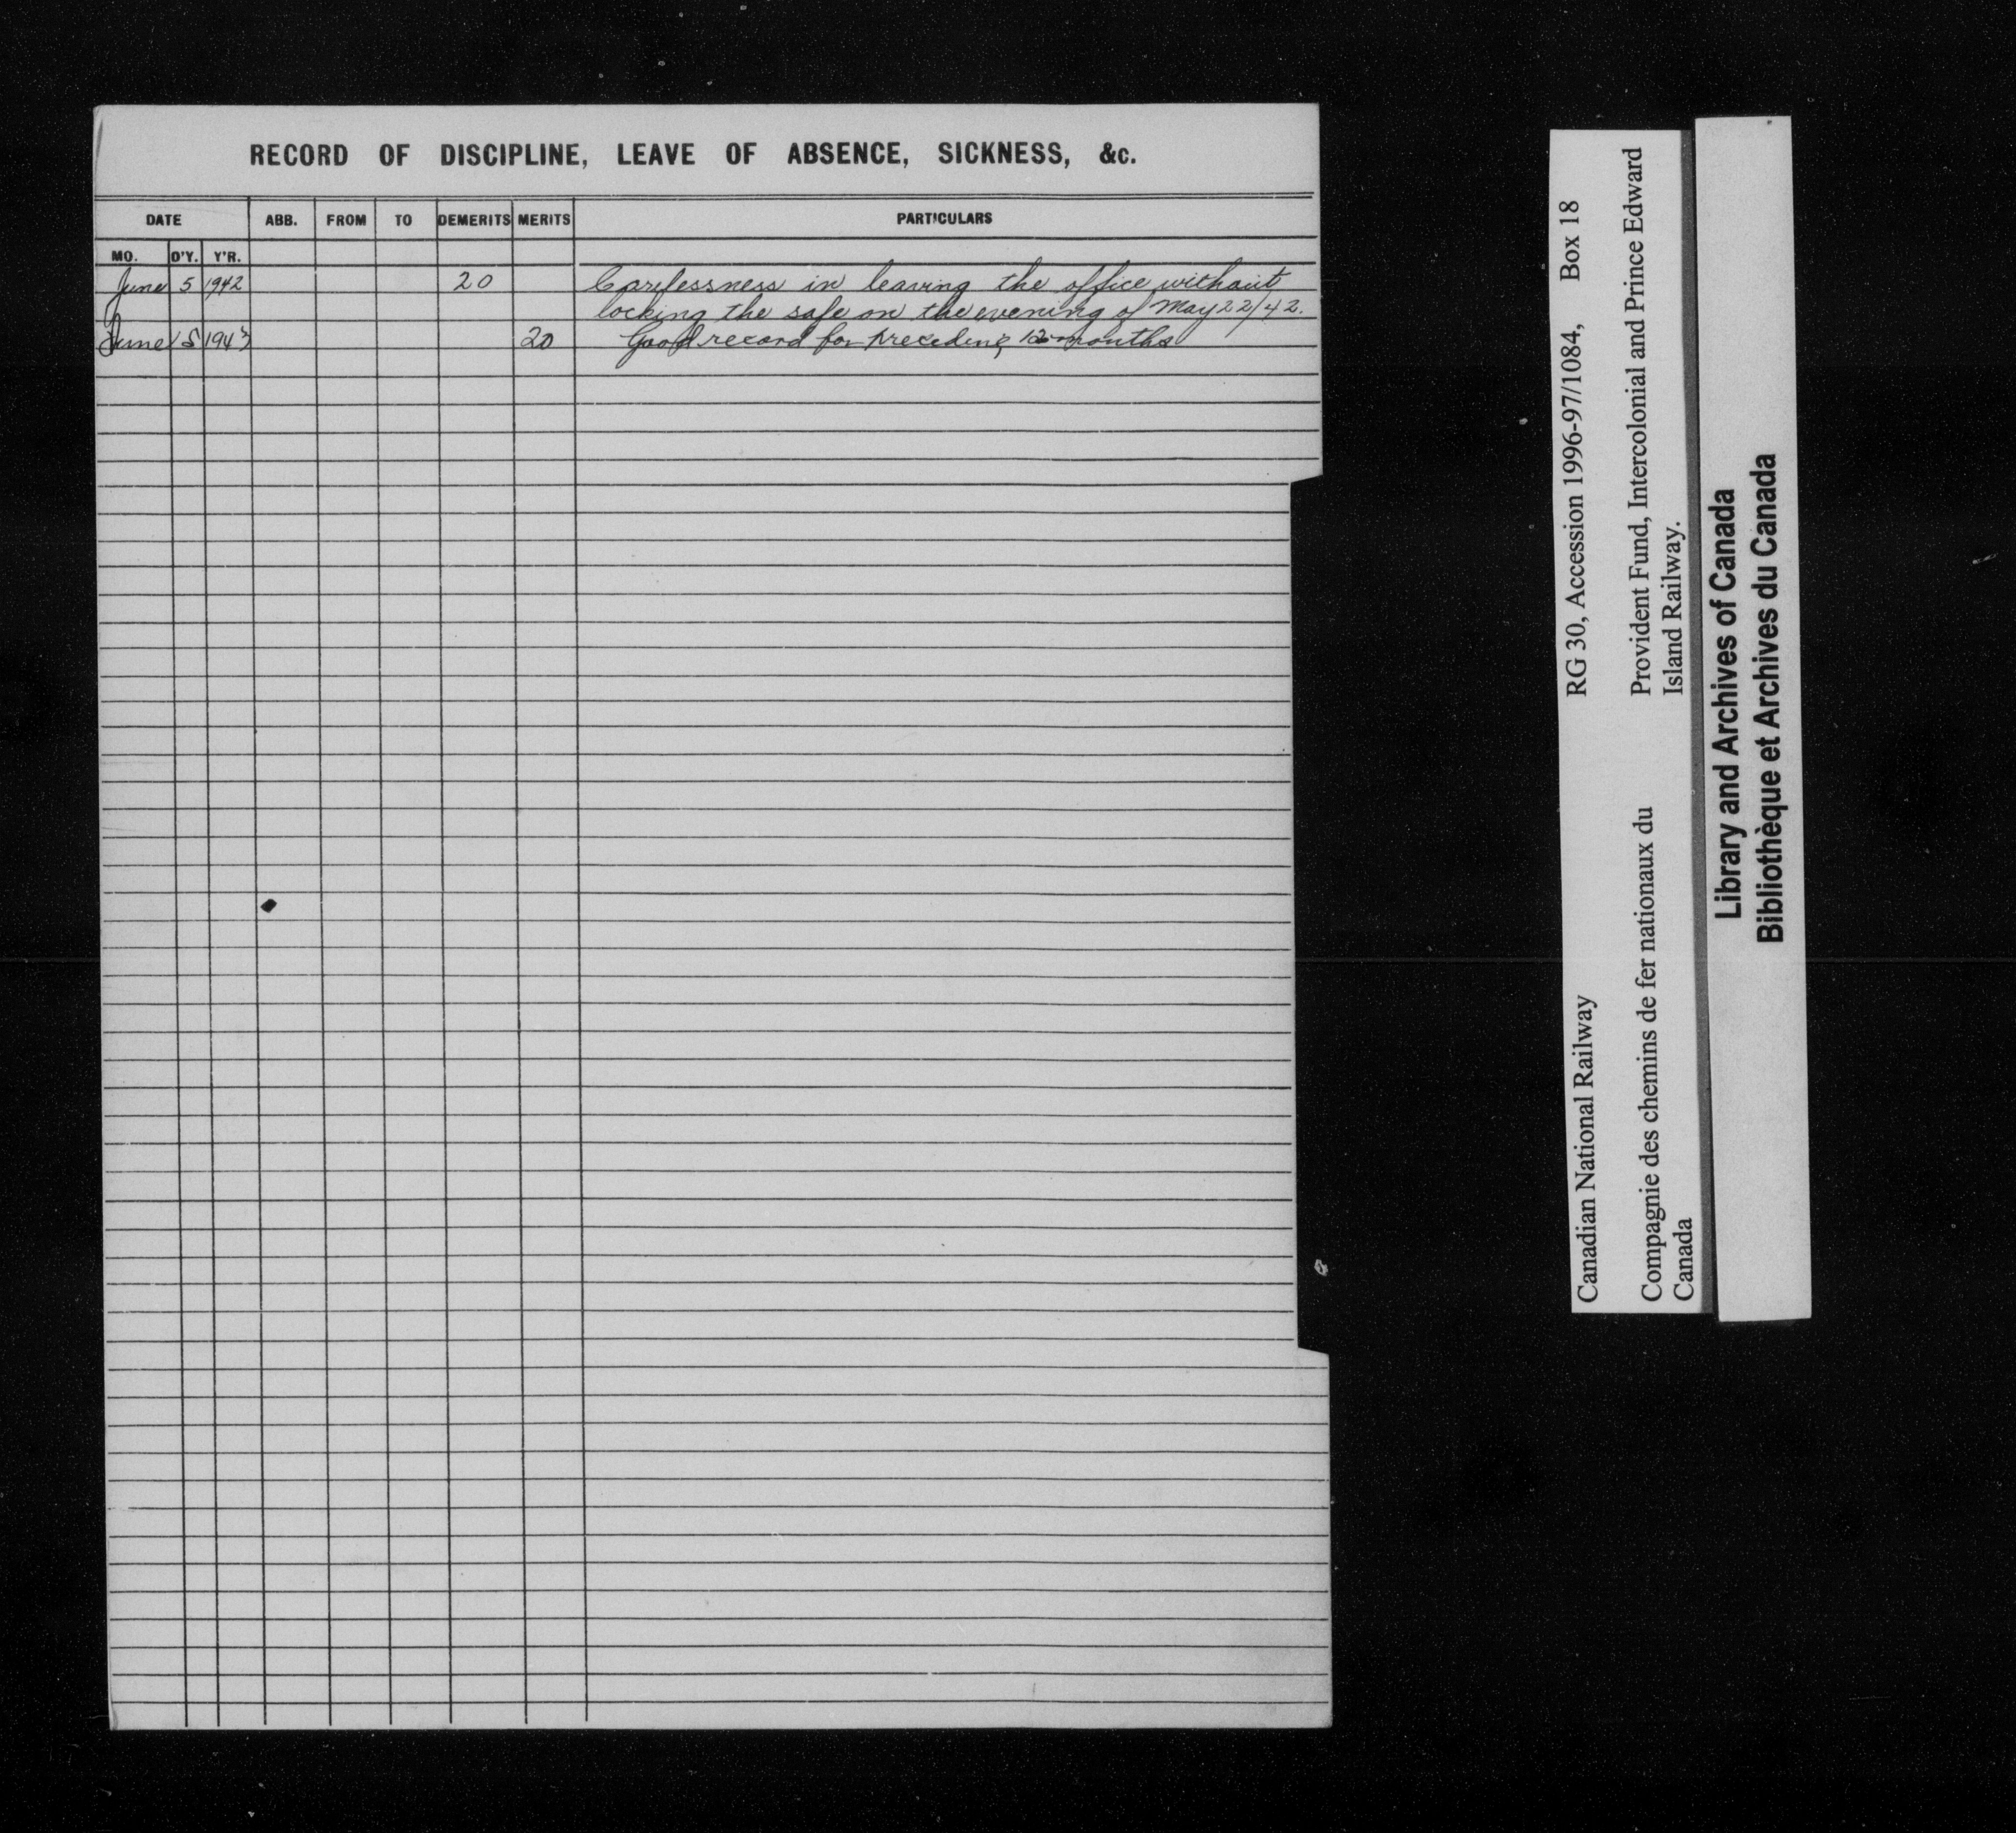 RECORD OF DISCIPLINE, LEAVE OF ABSENCE, SICKNESS, &c.
DATE ABB. FROM TO DEMERITS MERITS PARTICULARS
MO. D'Y. Y'R.
June 5 1942 20 Carelessness in leaving the office without
locking the safe on the evening of May 22/42.
June 5 1943 20 Good record for preceding 12 months
Canadian National Railway RG 30, Accession 1996-97/1084, Box 18
Compagnie des chemins de fer nationaux du Provident Fund, Intercolonial and Prince Edward
Canada Island Railway.
Library and Archives of Canada
Bibliothèque et Archives du Canada